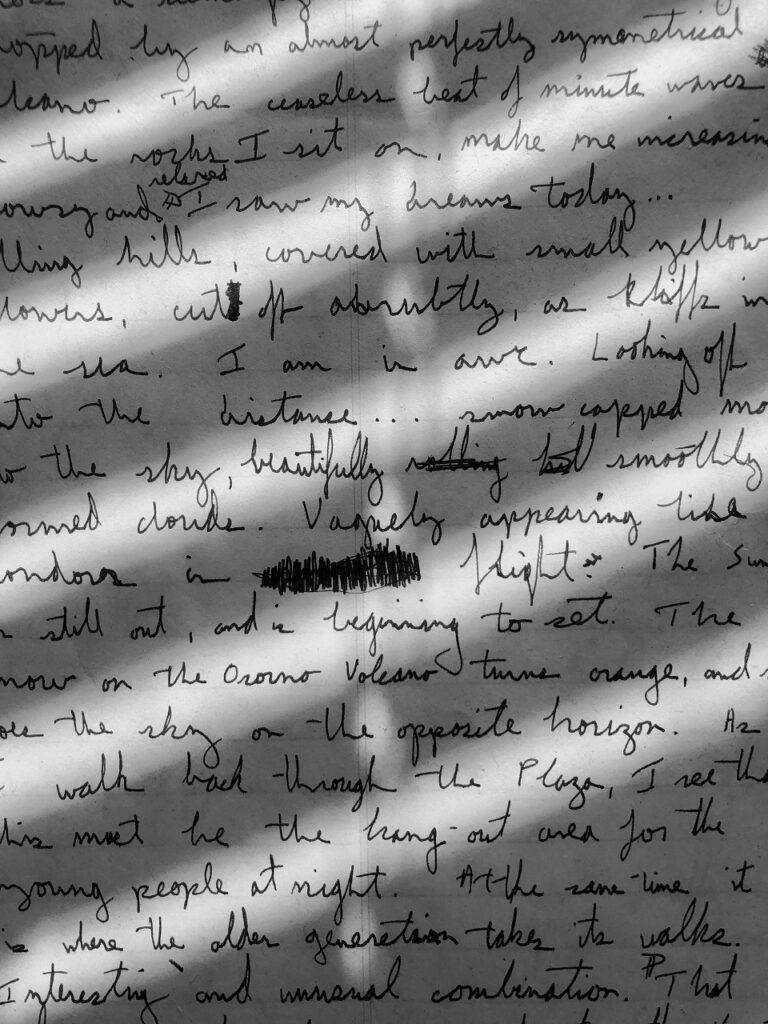 opped by an almost perfestly symmetrical
lcano. The ceaseless beat of minute waves
the rocks I sit on, make me increasin
relaxed
owsy and I saw my dreams today...
lling hills, covered with small yellow
lowers, cut off abrubtly, as kliffs in
he sea. I am in awe. Looking off
nto the distance... snow capped mo
to the sky, beautifully rolling smoothly
ormed clouds. Vaguely appearing like
ondors in flight. The Sun
still out, and is beginning to set. The
now on the Osorno Volcano turns orange, and s
oes the sky on the opposite horizon. As
I walk back through the Plaza, I see tha
his must be the hang-out area for the
young people at night. At the same-time it
is where the older generation takes its walks.
Interesting and unusual combination. That